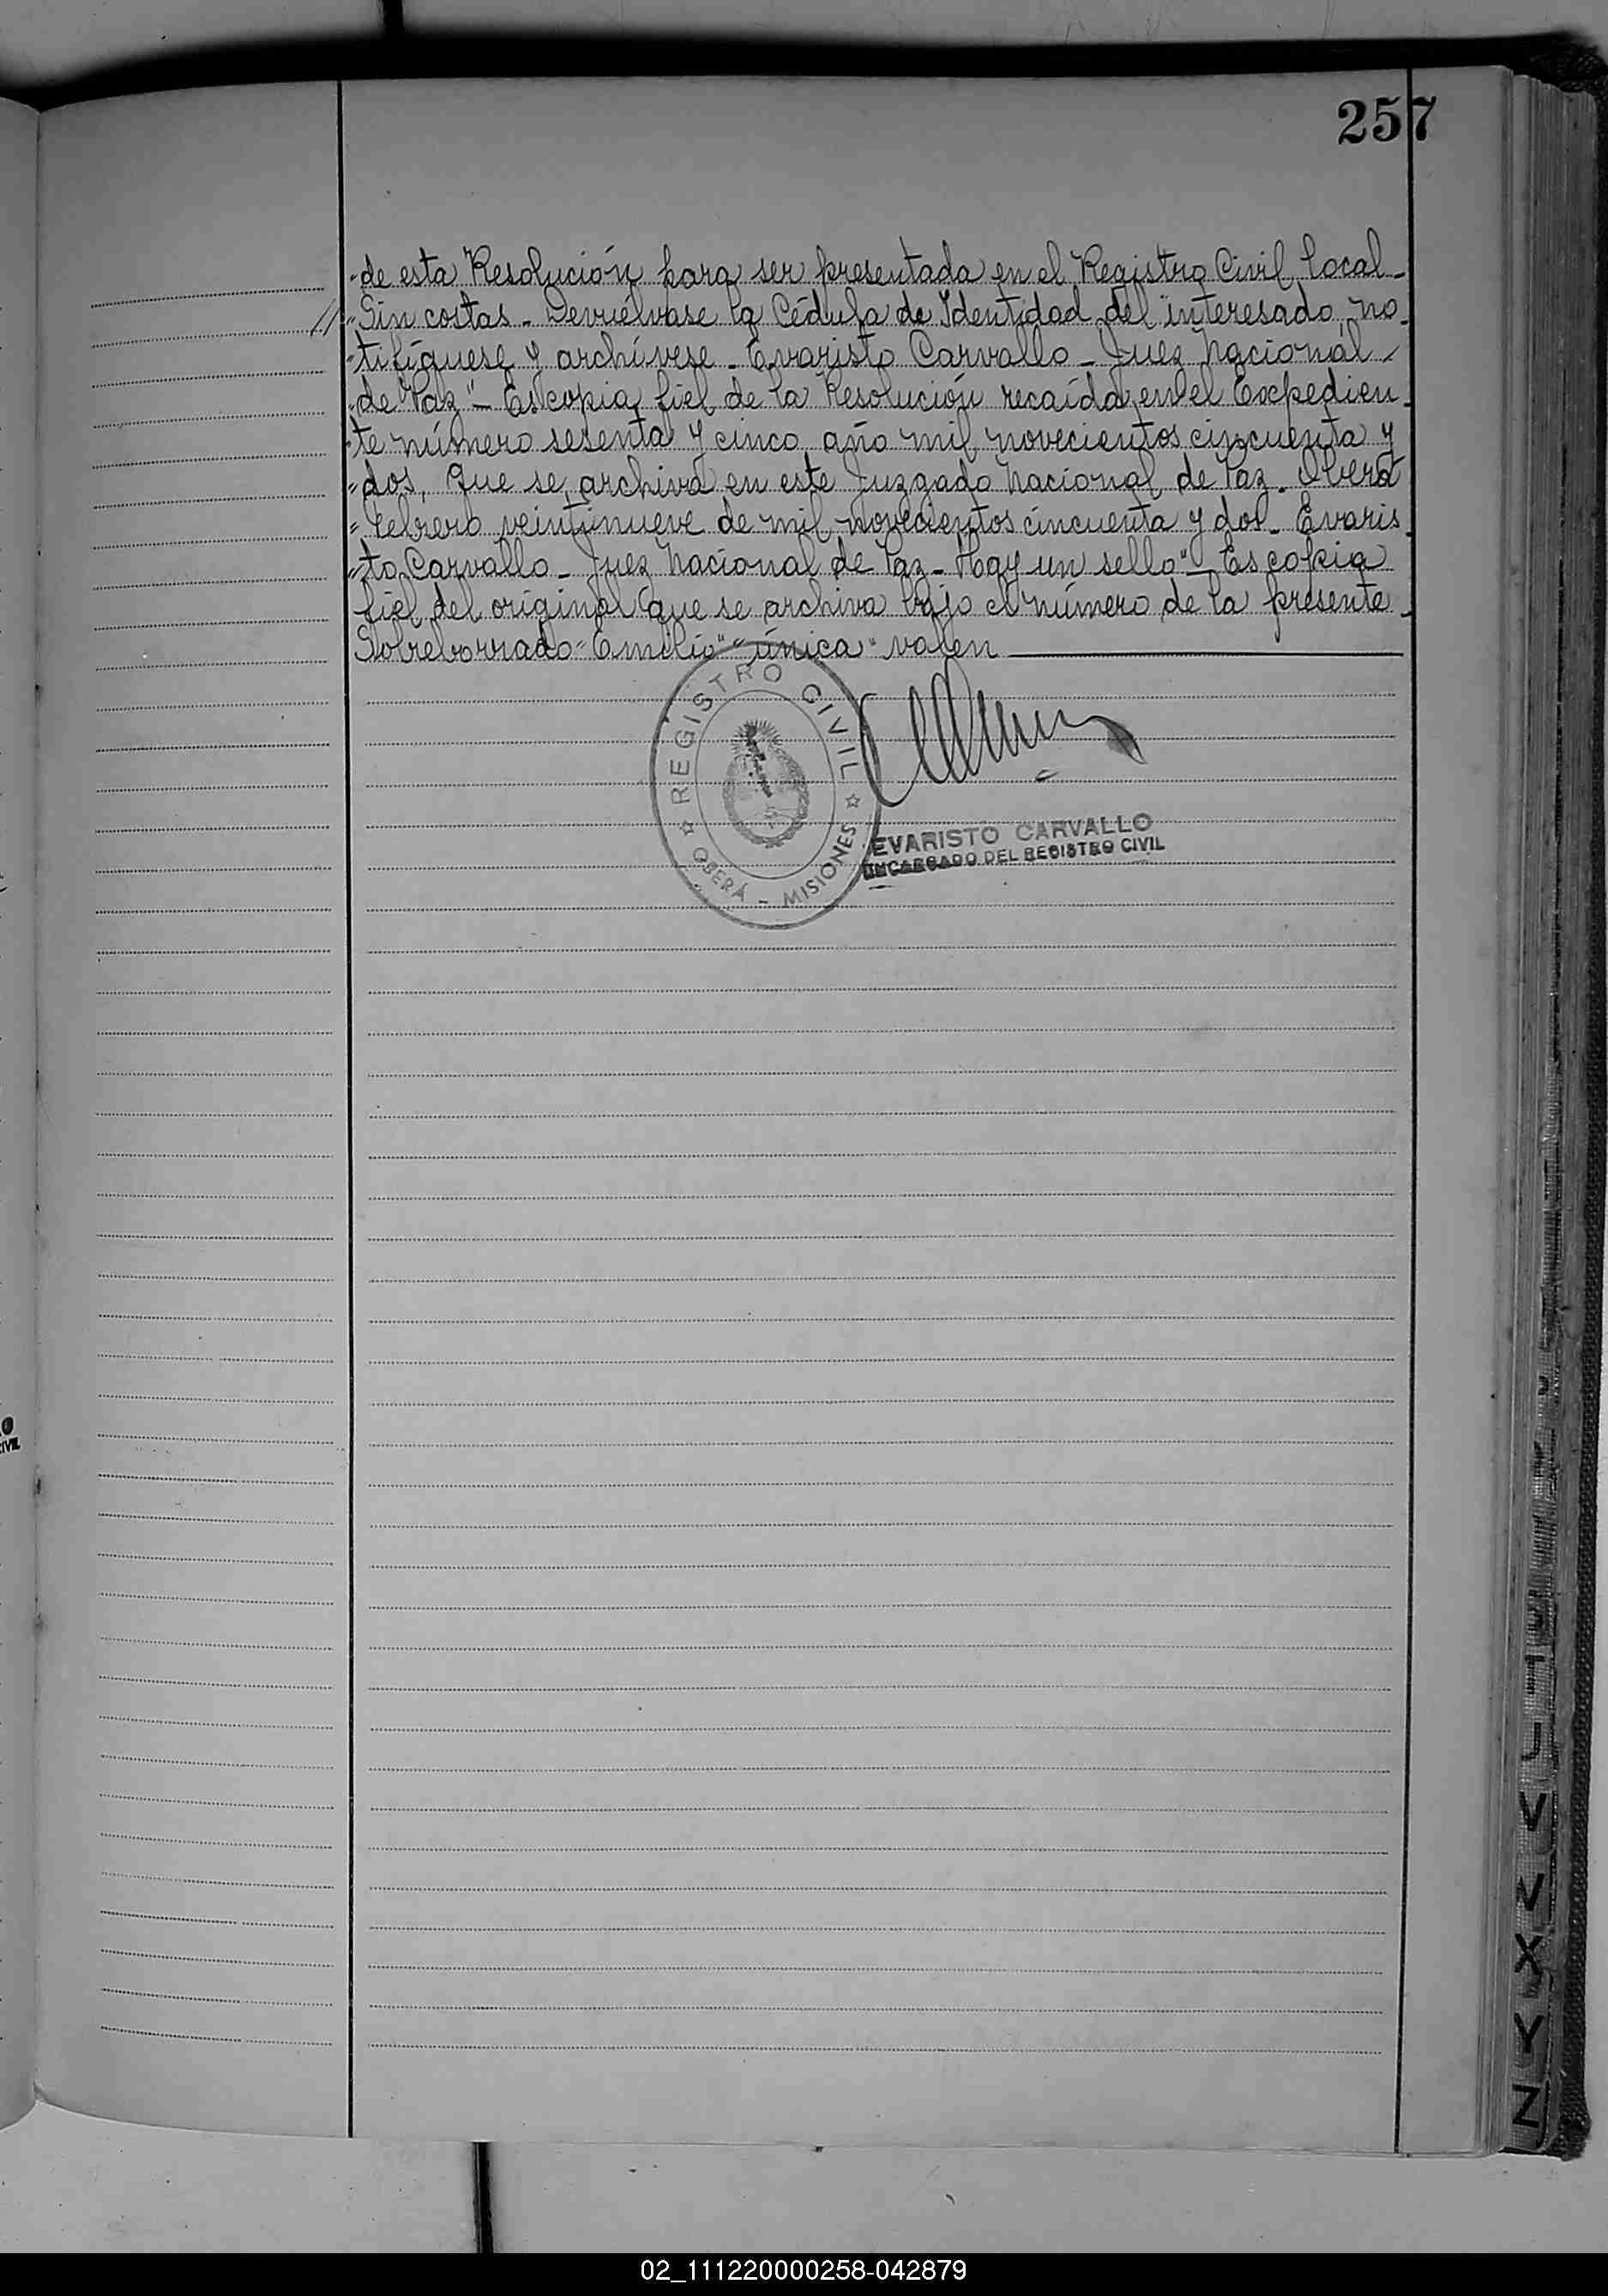 257
"de esta Resolución para ser presentada en el Registro Civil local_
// "Sin costas_ Devuélvase la Cédula de Identidad del interesado, no_
"tifíquese y archívese_ Evaristo Carvallo_ Juez Nacional
"de Paz"_ Es copia fiel de la Resolución recaída en el Expedien_
"te número sesenta y cinco año mil novecientos cincuenta y
"dos, que se archiva en este Juzgado Nacional de Paz_ Oberá
"Febrero veintinueve de mil novecientos cincuenta y dos_ Evaris_
"to Carvallo_ Juez Nacional de Paz_ Hay un sello"_ Es copia
fiel del original que se archiva bajo el número de la presente_
Sobreborrado "Emilio" "única" valen
REGISTRO CIVIL
OBERÁ - MISIONES
EVARISTO CARVALLO
ENCARGADO DEL REGISTRO CIVIL
CIVIL
V
X
Y
Z
02_111220000258-042879